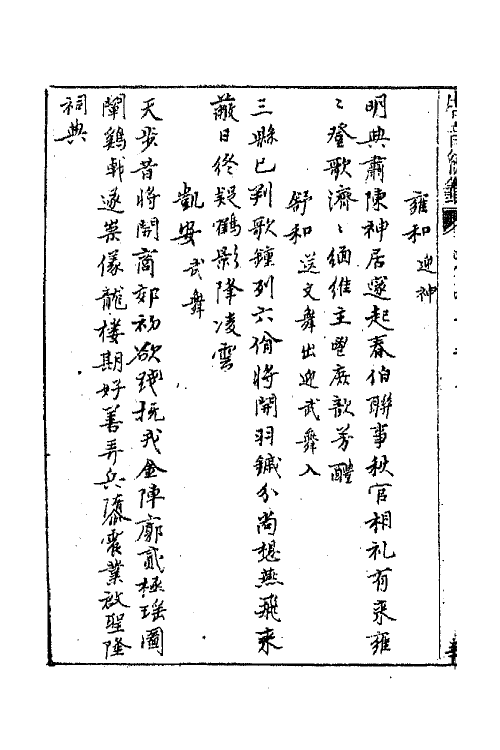 雍和 迎神
明典肅陳神居邃起春伯聯事秋官相礼有来雍
〻登歌濟〻緬維主鬯庶歆芳醴
舒和 送文舞出迎武舞入
三縣已判歌鐘列六佾將開羽鏚分尚想燕飛来
蔽日終疑鶴影降凌雲
凱安 武舞
天步昔將開商郊初欲踐撫戎金陣廓貳極瑤圖
闡鷄戟遂崇儀龍樓期好善弄兵隳震業啟聖隆
祠典